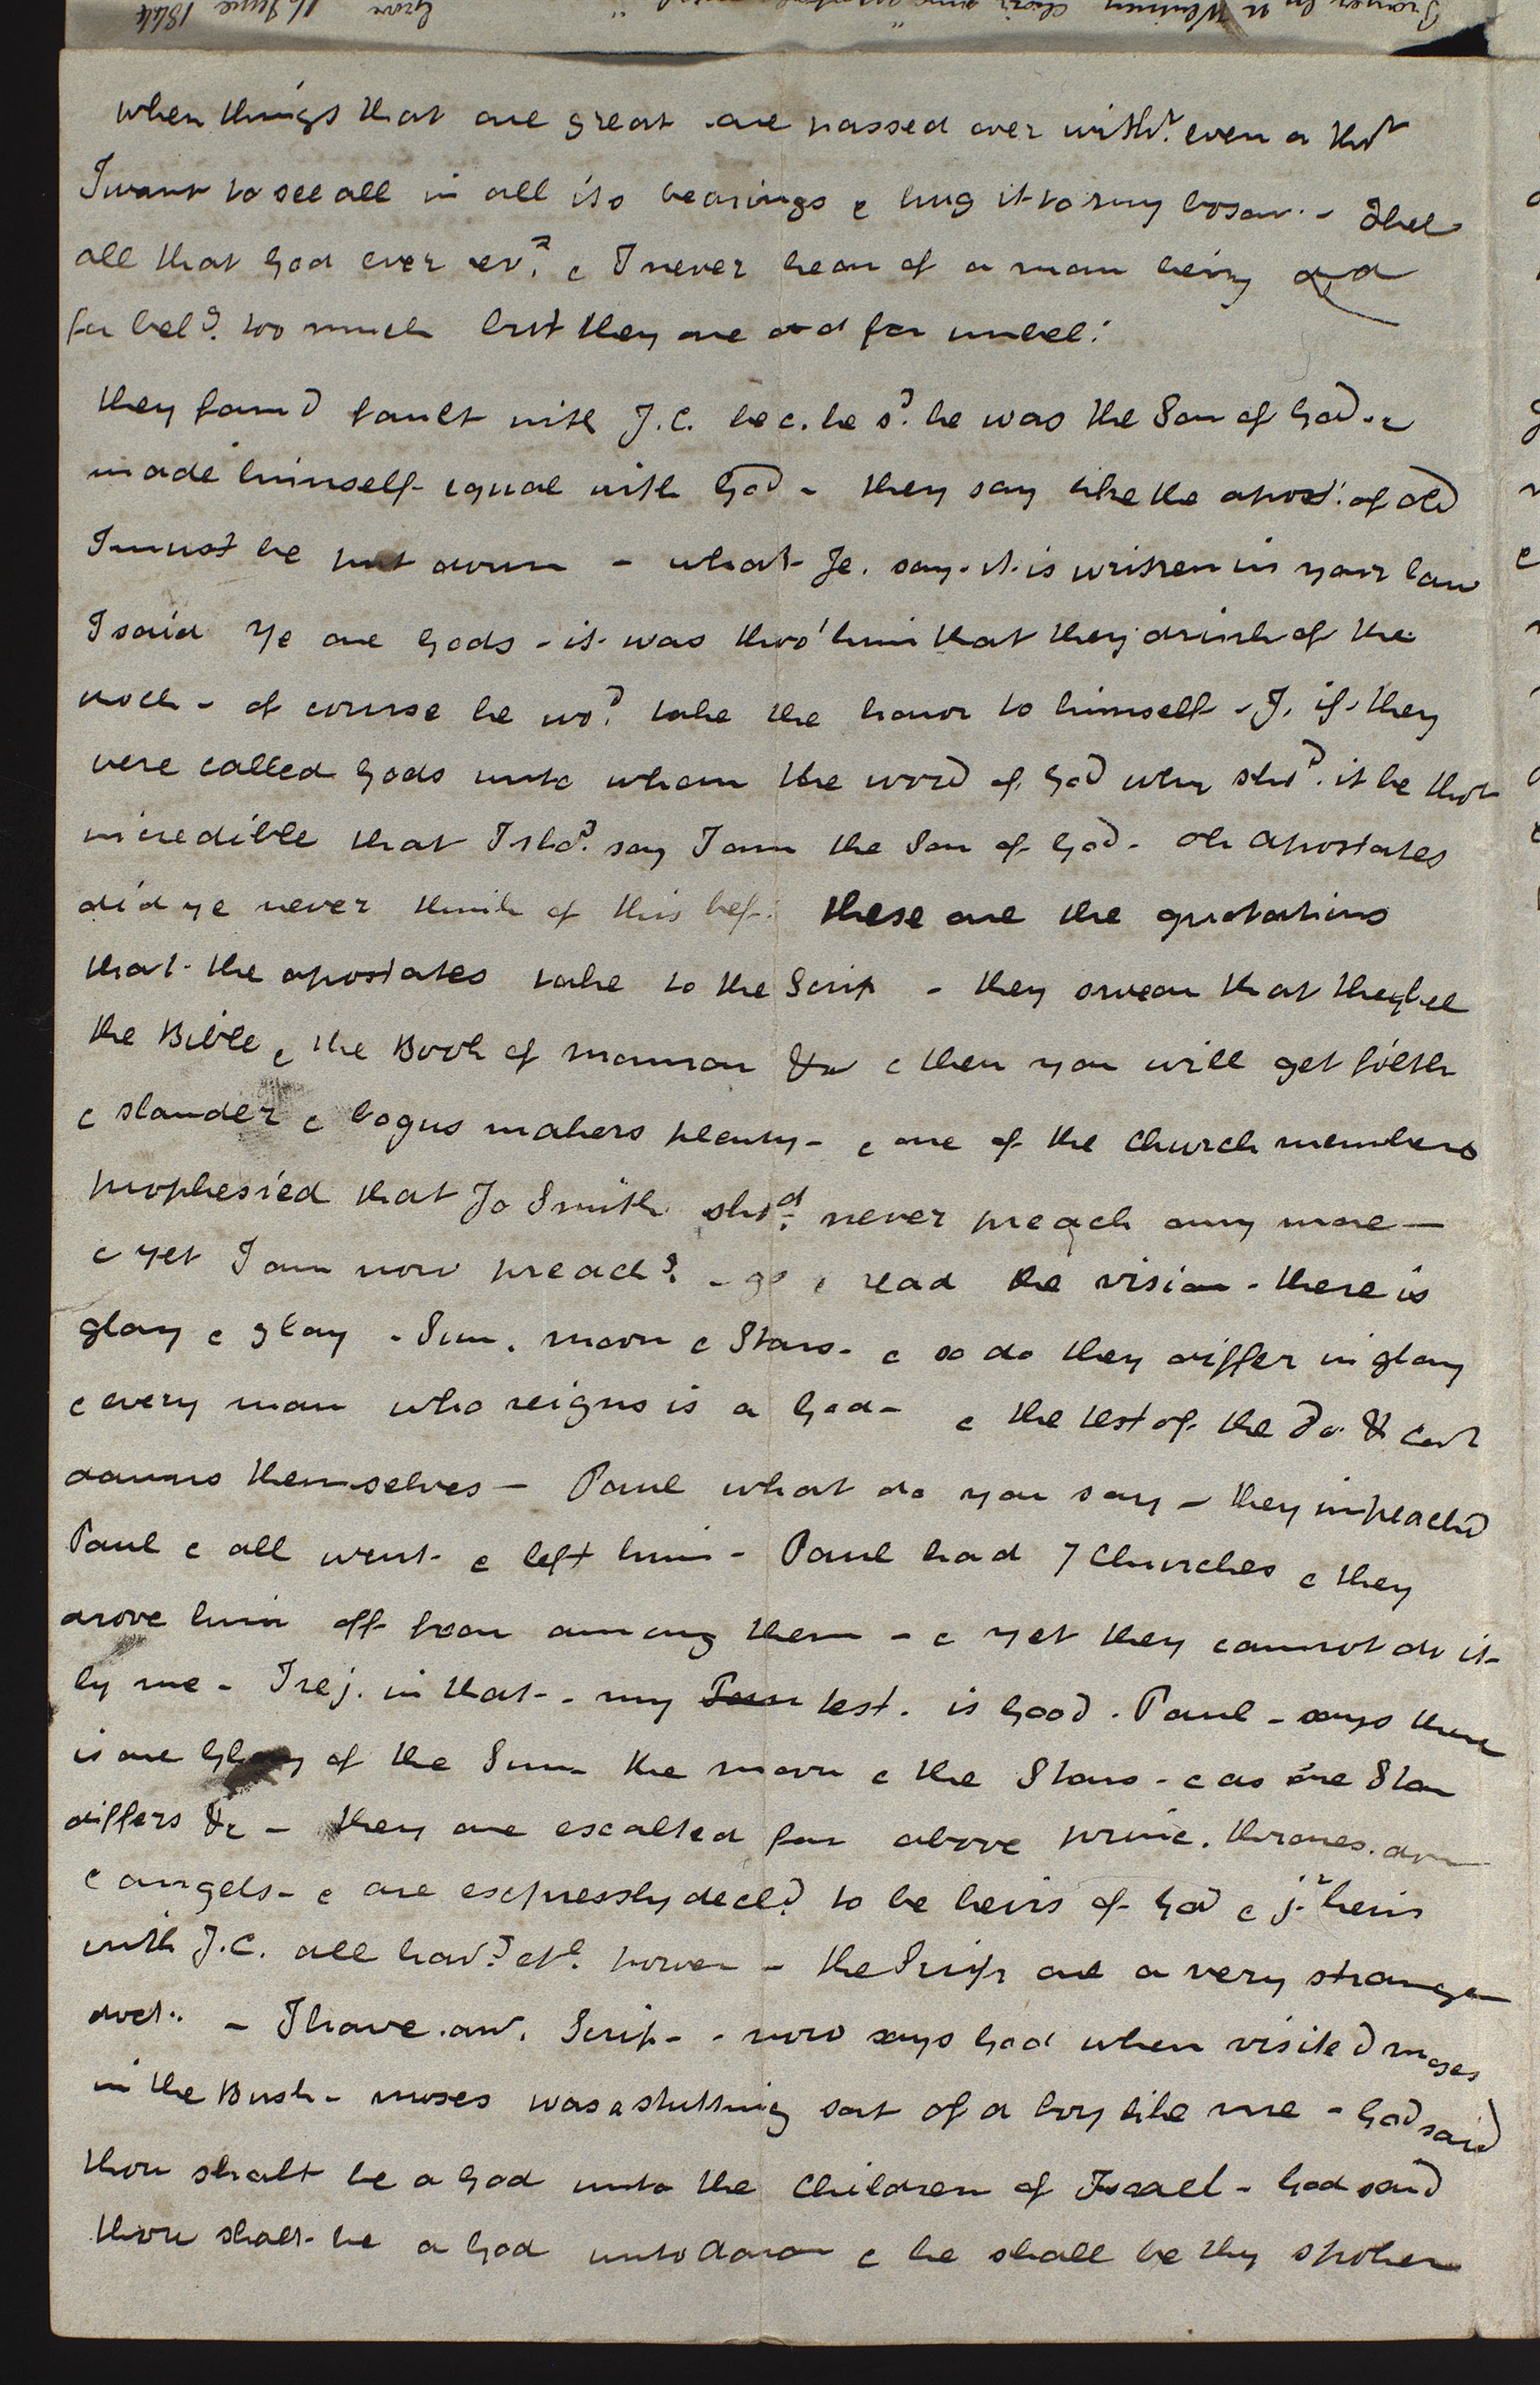 Prayer by N Whitney choir sung Grove 16 June 1844
when things that are great are passed over witht. even a thot
I want to see all in all its bearings & hug it to my bosom - I bel
all that God ever revd. & I never hear of a man being dd
for belg. too much but they are dd for unbel:
they found fault with J.C. bec. he sd. he was the Son of God &
made himself equal with God - they say like the apost: of old
I must be put down - what Je. say - it is written in your law
I said Ye are Gods - it was thro' him that they drink of the
rock - of course he wod. take the honor to himself - J. if they
were called Gods unto whom the word of God why shod. it be thot
incredible that I shod. say I am the Son of God. Oh Apostates
did ye never think of this bef: these are the quotations
that the apostates take to the Scrip - they swear that they bel
the Bible & the Book of Mormon &c & then you will get filth
& slander & bogus makers plenty - & one of the Church members
prophesied that Jo Smith shod. never preach any more —
& yet I am now preachg. - go & read the vision - there is
glory & glory - Sun, moon & Stars - & so do they differ in glory
& every man who reigns is a God - & the test of the Do & Covt
damns themselves — Paul what do you say - they impeachd
Paul & all went & left him - Paul had 7 Churches & they
drove him off from among them - & yet they cannot do it
by me - I rej. in that - my test. is good. Paul - says there
is one Glory of the Sun the moon & the Stars - & as one Star
differs &c - they are exalted far above princ. thrones. dom
& angels - & are expressly decld. to be heirs of God & jt. heirs
with J.C. all havg. etl. power - the Scrip are a very strange
doct.. - I have anr. Scrip - - now says God when visited Moses
in the Bush - Moses was a stutting sort of a boy like me - God said
thou shalt be a God unto the Children of Israel - God said
thou shalt be a God unto Aaron & he shall be thy spokes